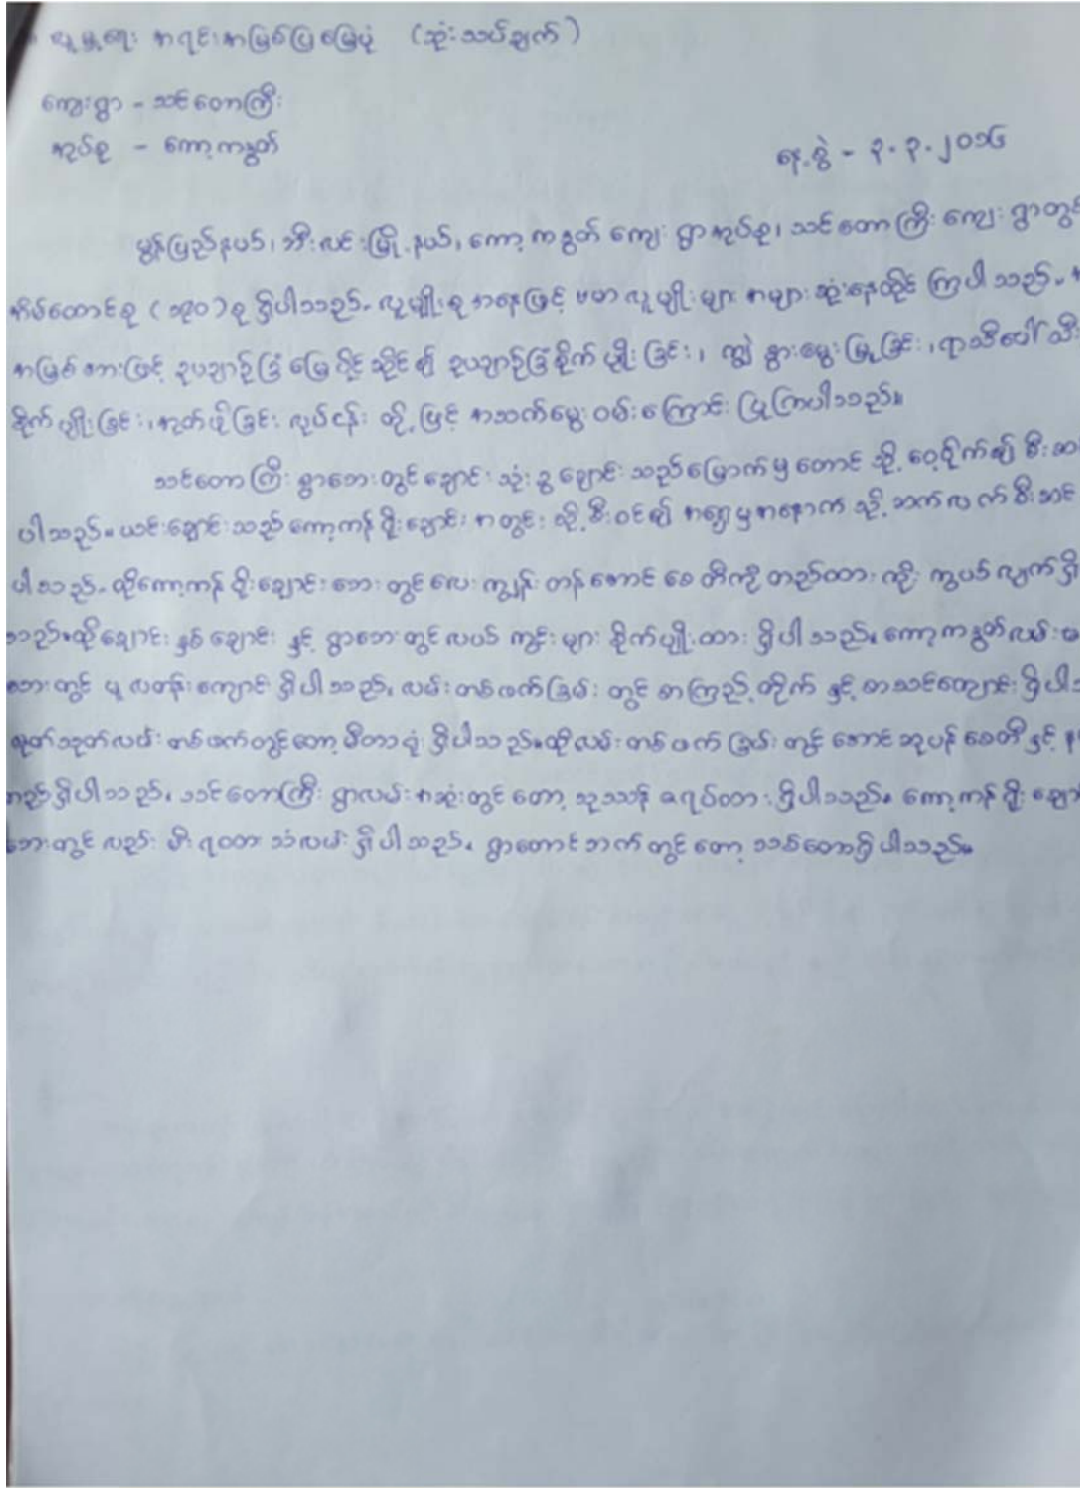 လူမှုရေး အရင်းအမြစ်ပြမြေပုံ (သုံးသပ်ချက်)
ကျေးရွာ - သင်တောကြီး
အုပ်စု - ကော့ကနွတ်
နေ့စွဲ - ၃.၃.၂၀၁၆
မွန်ပြည်နယ်၊ ဘီးလင်းမြို့နယ်၊ ကော့ကနွတ်ကျေးရွာအုပ်စု၊ သင်တောကြီးကျေးရွာတွင်
အိမ်ထောင်စု (၁၃၀) စု ရှိပါသည်။ လူမျိုးစုအနေဖြင့် ဗမာလူမျိုးများ အများဆုံးနေထိုင်ကြပါသည်။
အမြစ်အားဖြင့် ဥယျာဉ်ခြံမြေပိုင်ဆိုင်၍ ဥယျာဉ်ခြံစိုက်ပျိုးခြင်း၊ ကျွဲနွားမွေးမြူခြင်း၊ ရာသီပေါ်သီး
စိုက်ပျိုးခြင်း၊ အုတ်ဖိုခြင်း လုပ်ငန်းတို့ဖြင့် အသက်မွေးဝမ်းကြောင်းပြုကြပါသည်။
သင်တောကြီးရွာဘေးတွင် ချောင်းသုံးခွချောင်းသည် မြောက်မှတောင်သို့ ဝေ့ဝိုက်၍ စီးဆ
ပါသည်။ ယင်းချောင်းသည် ကော့ကန်ရိုးချောင်းအတွင်းသို့ စီးဝင်၍ အရှေ့မှအနောက်သို့ ဆက်လက်စီးဆင်
ပါသည်။ ထိုကော့ကန်ရိုးချောင်းဘေးတွင် လေးကျွန်းတန်အောင်စေတီကို တည်ထားကိုးကွယ်လျက်ရှိ
သည်။ ထိုချောင်းနှစ်ချောင်းနှင့် ရွာဘေးတွင် လယ်ကွင်းများ စိုက်ပျိုးထားရှိပါသည်။ ကော့ကနွတ်လမ်းမ
ဘေးတွင် မူလတန်းကျောင်းရှိပါသည်။ လမ်းတစ်ဖက်ခြမ်းတွင် စာကြည့်တိုက်နှင့် စာသင်ကျောင်းရှိပါသ
လမ်းတစ်ဖက်တွင်တော့ မီတာရုံရှိပါသည်။ ထိုလမ်းတစ်ဖက်ခြမ်းတွင် အောင်ဆုပန်စေတီနှင့်
တည်ရှိပါသည်။ သင်တောကြီးရွာလမ်းအဆုံးတွင်တော့ သုသာန်ဇရပ်ထားရှိပါသည်။ ကော့ကန်ရိုးချော
ဘေးတွင်လည်း မီးရထားသံလမ်းရှိပါသည်။ ရွာတောင်ဘက်တွင်တော့ သစ်တောရှိပါသည်။